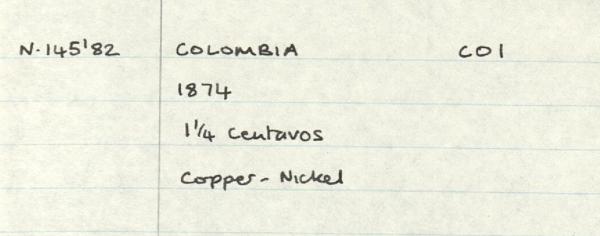 N.145'82 COLOMBIA CO1
1874
1 1/4 Centavos
Copper-Nickel